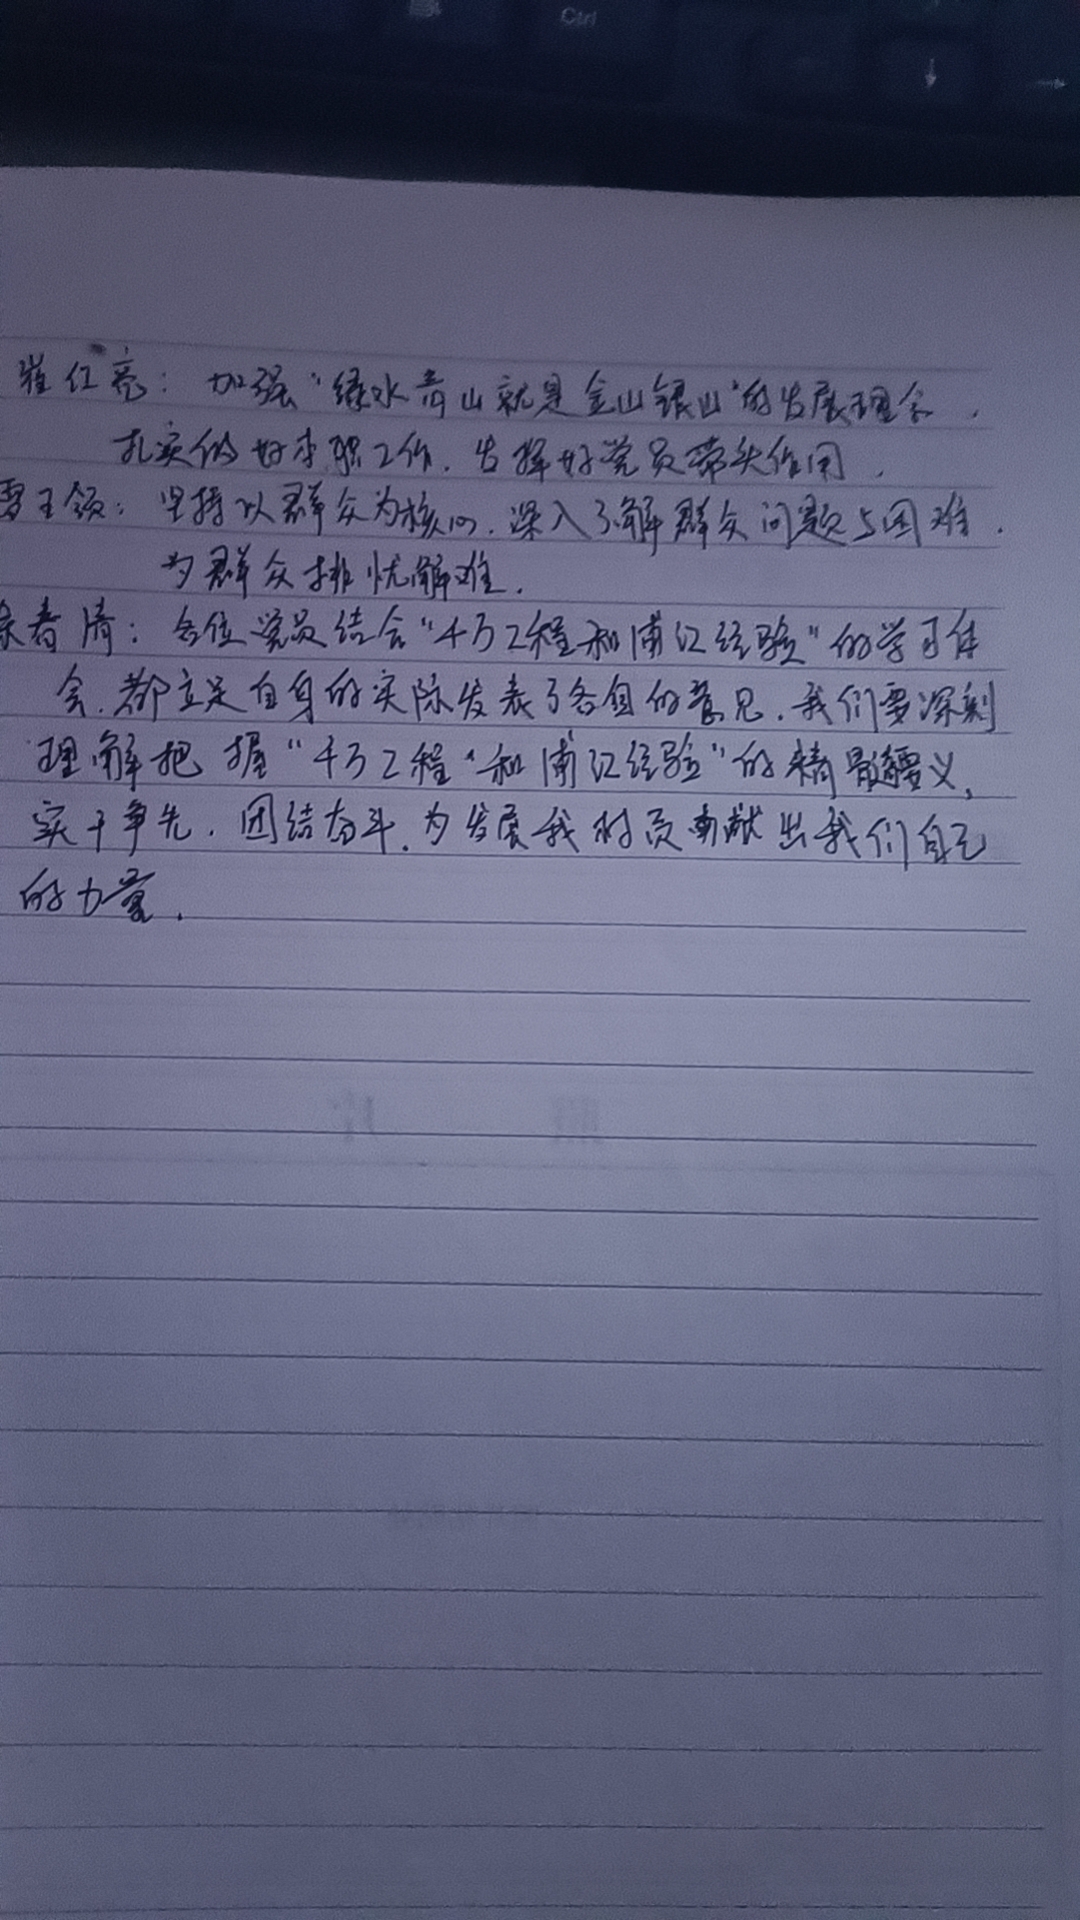 Ctrl
崔红亮：加强“绿水青山就是金山银山”的发展理念，
扎实做好本职工作，发挥好党员带头作用，
王领：坚持以群众为核心，深入了解群众问题与困难，
为群众排忧解难，
春清：各位党员结合“千万工程和浦江经验”的学习体
会，都立足自身的实际发表了各自的意见，我们要深刻
理解把握“千万工程”和“浦江经验”的精髓要义，
实干争先，团结奋斗，为发展我村贡献出我们自己
的力量，
照 片